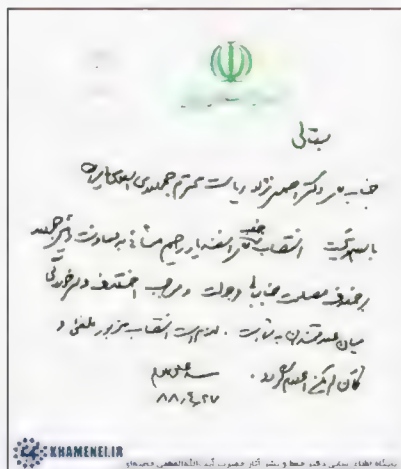 بسمه‌تعالی
جناب آقای دکتر احمدی نژاد ریاست محترم جمهوری اسلامی ایران
با سلام و تحیت انتصاب جناب آقای اسفندیار رحیم مشائی به معاونت رئیس جمهور
بر خلاف مصلحت جنابعالی و دولت و موجب اختلاف و سرخوردگی
میان علاقمندان به شما است. لازم است انتصاب مزبور ملغی و
کان لم یکن اعلام گردد.
سید علی خامنه‌ای
۸۸٫۴٫۲۷
KHAMENEI.IR